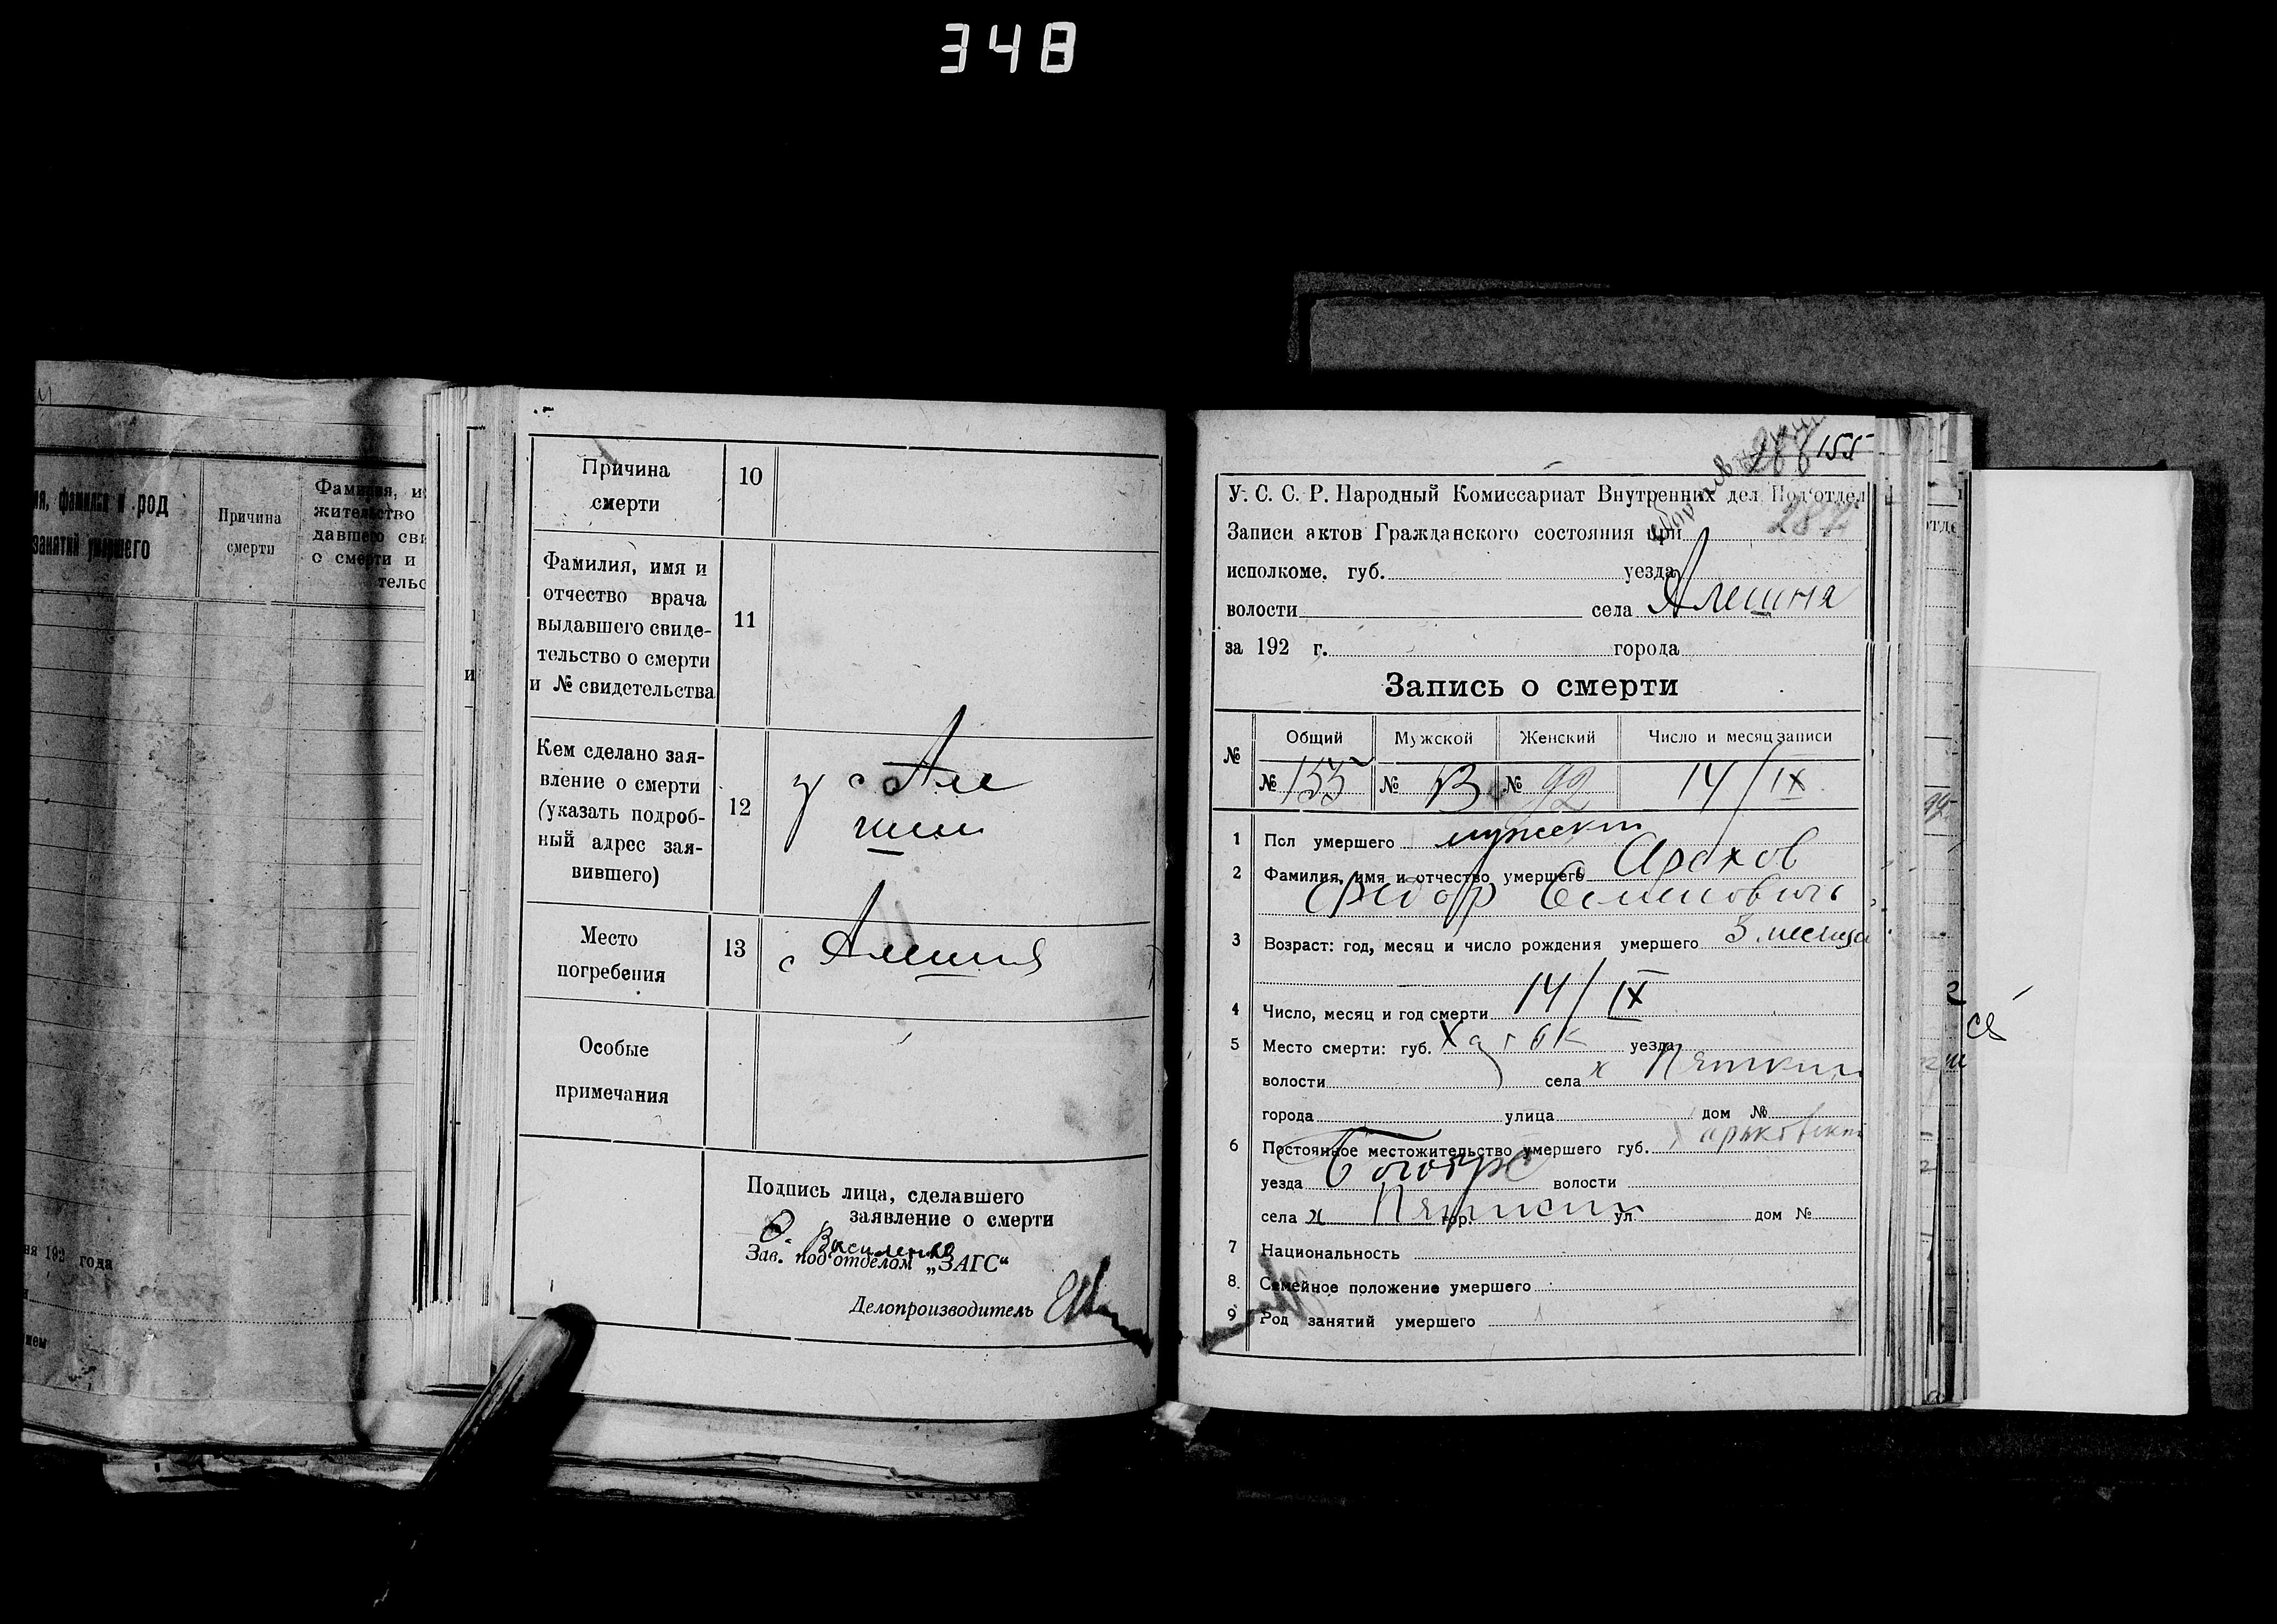 348
ия, фамилия и род
занятий умершего
Причина
смерти
Фамилия, и
жительство
давшего сви
о смерти и
тельс
ня 192 года
Причина
смерти
10
Фамилия, имя и
отчество врача
выдавшего свиде-
тельство о смерти
и № свидетельства
11
Кем сделано зая-
вление о смерти
(указать подроб-
ный адрес зая-
вившего)
12
с Але
шни
Место
погребения
13
с Алешня
Особые
примечания
Подпись лица, сделавшего
заявление о смерти
Василенко
Зав. под'отделом „ЗАГС“
Делопроизводитель
288 155
У. С. С. Р. Народный Комиссариат Внутренних дел Под'отдел
Записи актов Гражданского состояния при 287
исполкоме. губ. уезда
волости села Алешня
за 192 г. города
Запись о смерти
№ Общий Мужской Женский Число и месяц записи
№ 155 № № 92 14/IX
1 Пол умершего мужск
2 Фамилия, имя и отчество умершего Арохов
Федор Семенович
3 Возраст: год, месяц и число рождения умершего 3 месяца
4 Число, месяц и год смерти 14/IX
5 Место смерти: губ. Харьк уезда
волости села х Пяткин
города улица дом №
6 Постоянное местожительство умершего губ. Харьковск
уезда Богодух волости
села х Пяткин гор. ул дом №
7 Национальность
8. Семейное положение умершего
9 Род занятий умершего